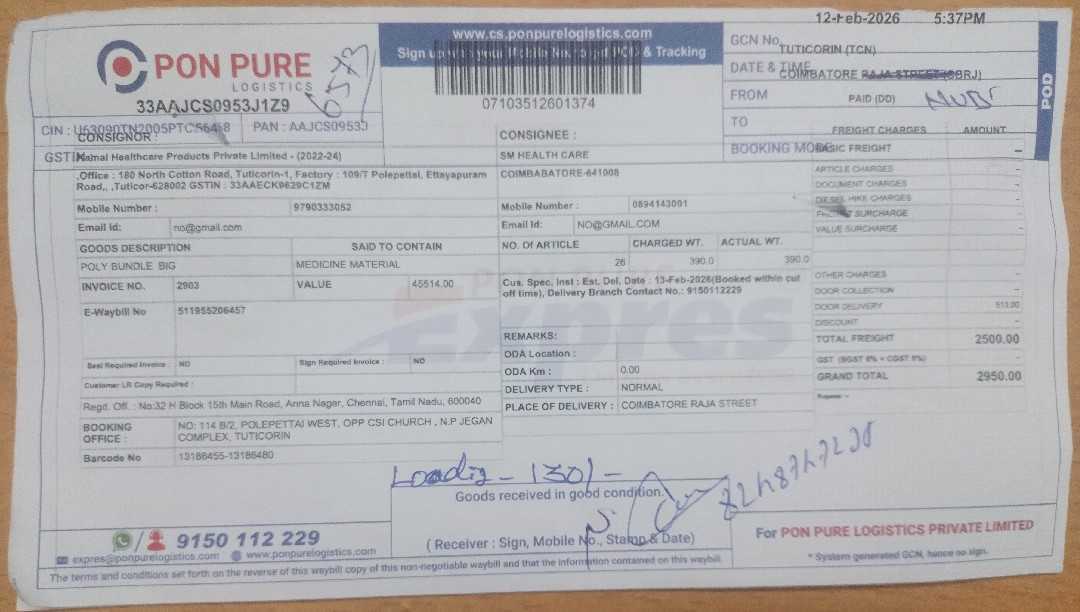 PON PURE
LOGISTICS
33AAJCS0953J1Z9
www.cs.ponpurelogistics.com
07103512601374
12-Feb-2026 5:37PM
GCN No.
TUTICORIN (TCN)
DATE & TIME
COIMBATORE RAJA STREET (CBRJ)
FROM
PAID (DD)
TO
BOOKING MODE
POD
PAN : AAJCS0953J
CONSIGNOR :
Kamal Healthcare Products Private Limited - (2022-24)
,Office : 180 North Cotton Road, Tuticorin-1, Factory : 109/7 Polepettai, Ettayapuram
Road,, ,Tuticor-628002 GSTIN : 33AAECK9629C1ZM
Mobile Number : 9790333052
Email Id: no@gmail.com
CONSIGNEE :
SM HEALTH CARE
COIMBABATORE-641008
Mobile Number : 0894143001
Email Id: NO@GMAIL.COM
GOODS DESCRIPTION SAID TO CONTAIN
POLY BUNDLE BIG MEDICINE MATERIAL
NO. Of ARTICLE CHARGED WT. ACTUAL WT.
26 390.0 390.0
INVOICE NO. 2903 VALUE 45514.00
Cus. Spec. Inst : Est. Del. Date : 13-Feb-2026(Booked within cut
off time), Delivery Branch Contact No.: 9150112229
E-Waybill No 511955206457
REMARKS:
Seal Required Invoice : NO Sign Required Invoice : NO
ODA Location :
Customer LR Copy Required :
ODA Km : 0.00
DELIVERY TYPE : NORMAL
PLACE OF DELIVERY : COIMBATORE RAJA STREET
Regd. Off. : No:32 H Block 15th Main Road, Anna Nagar, Chennai, Tamil Nadu, 600040
BOOKING OFFICE : NO: 114 B/2, POLEPETTAI WEST, OPP CSI CHURCH , N.P JEGAN
COMPLEX, TUTICORIN
Barcode No 13186455-13186480
FREIGHT CHARGES AMOUNT
BASIC FREIGHT –
ARTICLE CHARGES –
DOCUMENT CHARGES –
DIESEL HIKE CHARGES –
FREIGHT SURCHARGE –
VALUE SURCHARGE –
OTHER CHARGES –
DOOR COLLECTION –
DOOR DELIVERY
DISCOUNT –
TOTAL FREIGHT 2500.00
GST (SGST 9% + CGST 9%) –
GRAND TOTAL 2950.00
Loadig - 130/-
Goods received in good condition.
( Receiver : Sign, Mobile No., Stamp & Date)
9150 112 229
expres@ponpurelogistics.com www.ponpurelogistics.com
For PON PURE LOGISTICS PRIVATE LIMITED
* System generated GCN, hence no sign.
The terms and conditions set forth on the reverse of this waybill copy of this non-negotiable waybill and that the information contained on this waybill.